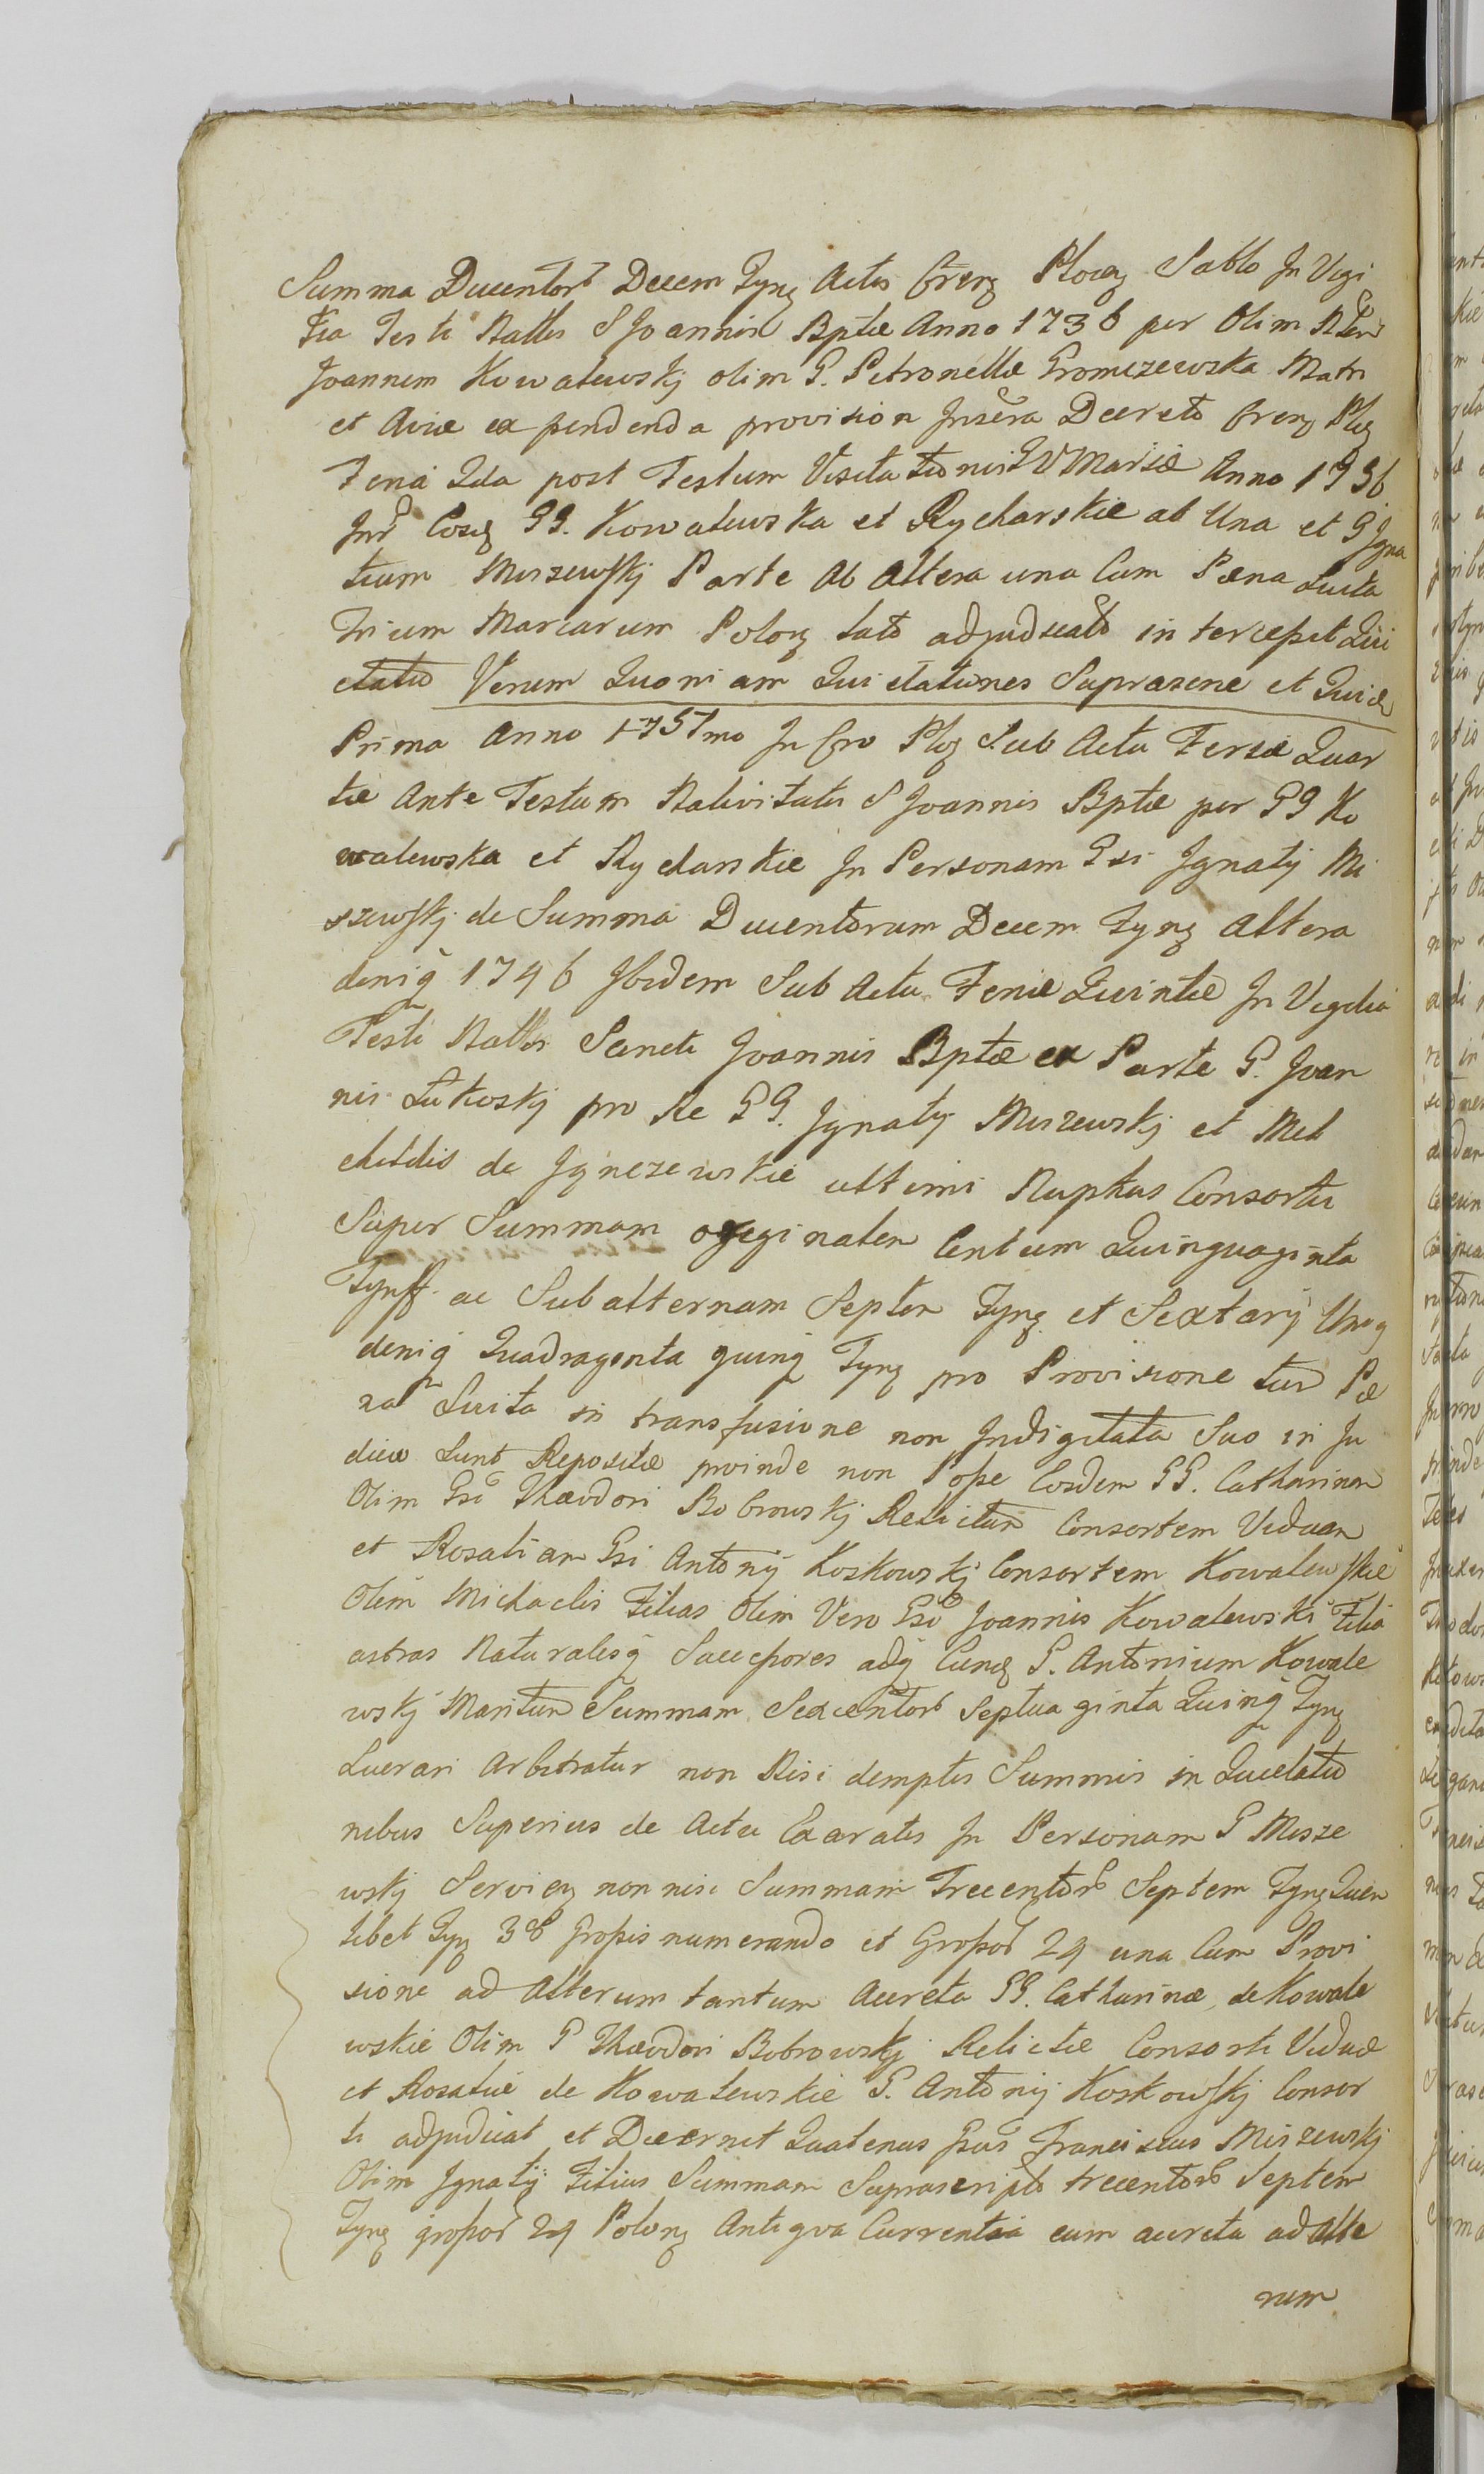 Summa Ducentorū Decem Tynq Actis Crenq Plocenq Sabbo In Vigi
lia Festi Natlis S Joannis Bptæ Anno 1736 per Olim
Joannem Kowalewskj olim G. Petronellæ Gromczewska Matri
et Aviæ expendenda provision Decreto Crenq Plq
Feria 2da post Festum Visitationis BVMariæ Anno 1736
Intr GG. Kowalewska et Rycharskie ab Una et G Igna
tium Miszewskj Parte Ab Altera una Cum Pæna Luita
Trium Marcarum Polonq lato adjudicato intercepit Qui
etatio Verum Quoniam Quietationes Suprasene et Quidē
Prima Anno 1757mo In Cro Plq Sub Actu Feriæ Quar
tæ Ante Festum Nativitatis S Joannis Bptæ per GG Ko
walewska et Rycharskie In Personam Gsi Ignatij Mi
szewskj de Summa Ducentorum Decem Tynq Altera
deniq 1746 Ibidem Sub Actu Feriæ Quintæ In Vigilia
Festi Natlis Sancti Joannis Bptæ ex Parte G. Joan
nis Lukoskj pro Re GG. Ignatij Miszewskj et Mel
childis de ultimi Nuptus Consortis
Super Summam originalem Centum Quinquaginta
Tynff ac Subalternam Septem Tynq et Sextarij Unoq
deniq Quadraginta quinq Tynq pro Provisione tum Pæ
na Luita in transfusione non Indigitata Suo in Ju
dicio Sunt Repositæ proinde non Posse Eosdem GG. Catharinam
Olim Gsi Theodori Bobrowskj Relictam Consortem Viduam
et Rosaliam Gsi Antonij Koskowskj Consortem Kowalewskie
Olim Michaelis Filias Olim Vero Gsi Joannis Kowalewski Filia
astras Naturalesq Successores adq G. Antonium Kowale
wskj Maritum Summam Sexcentorū Septuaginta Quinq Tynq
Lucrari Arbitratur non Nisi demptis Summis in Quietatio
nibus Superius de Actu Exaratis In Personam G Misze
wskj Servienq non nisi Summam Trecentorū Septem Tynq Quem
libet Tynq 38 grossis numerando et Grossorū 24 una Cum Provi
sione ad Alterum tantum Acreta GG. Catharinæ de Kowale
wskie Olim G Theodori Bobrowskj Relictæ Consorti Viduæ
et Rosaliæ de Kowalewskie G. Antonij Koskowskj Consor
ti adjudicat et Decernit Quatenus Gsus Franciscus Miszewskj
Olim Ignatij Filius Summam Suprascripto trecentorū Septem
Tynq grossorū 24 Polonq Antiqva Currentia cum acreta ad Alte
rum